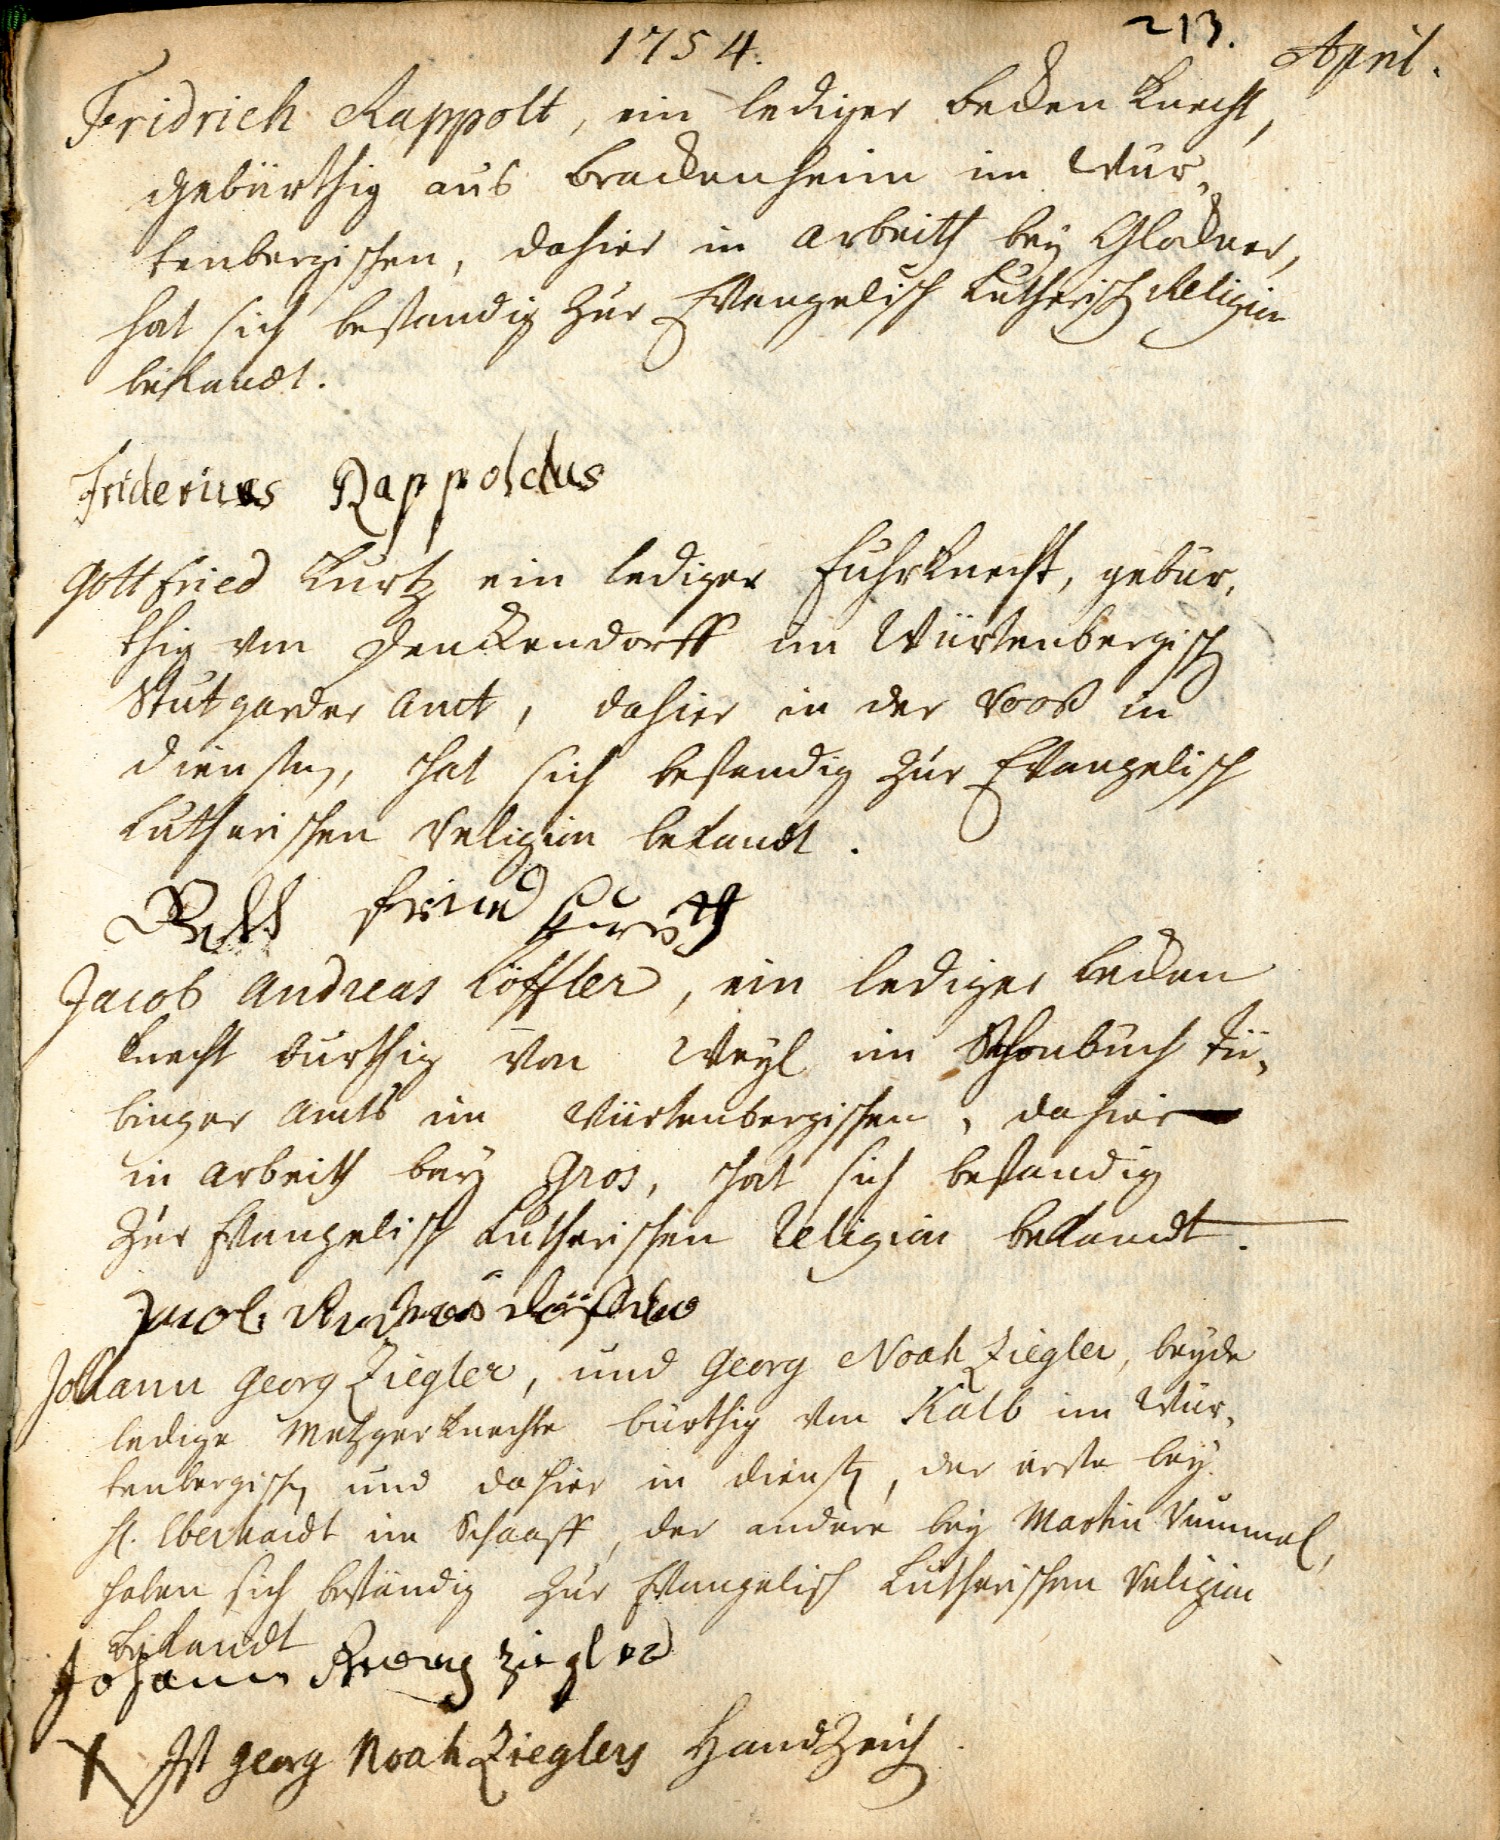 1754.
213. April.
Fridrich Rappolt, ein lediger becken Knecht,
gebürthig aus Brackenheim im Wür-
tenbergischen, dahier in arbeith bey Glockner,
hat sich bestandig zur Evangelisch Lutherisch Religion
bekandt.
Fridericus Rappoldus
Gottfried Kurtz ein lediger Fuhrknecht, gebür-
thig von Denckendorff im Würtenbergisch
Stutgarder Amt, dahier in der Rooß in
diensten, hat sich bestendig zur Evangelisch
Lutherischen Religion bekandt.
Gottfried Kurtz
Jacob Andreas Löffler, ein lediger becken
Knecht burthig von Weyl im Schonbuch Tü-
binger Amts im Würtenbergischen, dahier
in arbeith bey Gros, hat sich bestandig
zur Evangelisch Lutherischen Religion bekandt.
Jacob Andreas Löffler
Johann Georg Ziegler, und Georg Noah Ziegler, beyde
ledige Metzgerknechte bürthig von Kalb im Wür-
tenbergisch und dahier in dienst, der erste bey
H. Eberhardt im Schaaff, der andere bey Martin Rummel,
haben sich beständig zur Evangelisch Lutherischen Religion
bekandt
Johann Georg Ziegler
X Ist Georg Noah Zieglers HandZeich.